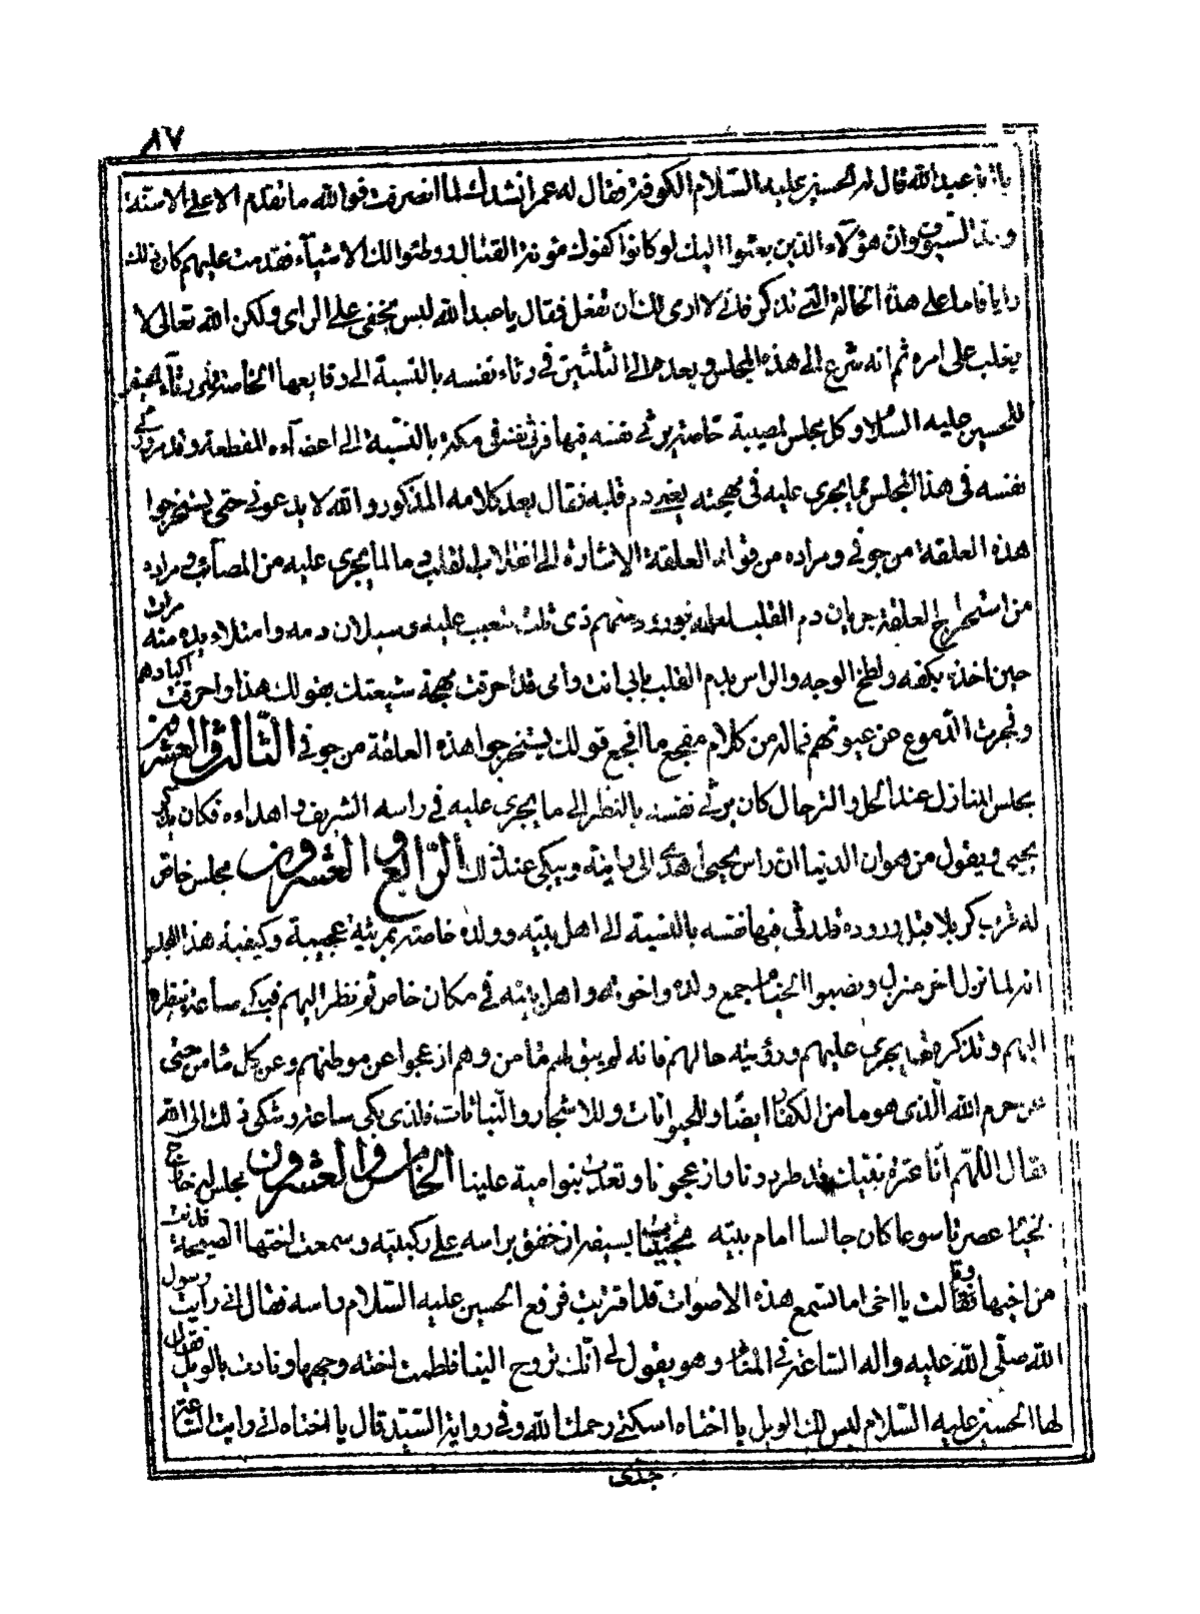 ٨٧
يا ابا عبد الله قال له الحسين عليه السلام الكوفة فقال له عمر انشدك لما انصرفت فوالله ما تقدم الا على الاسنة
وحد السيوف وان هؤلاء الذين بعثوا اليك لو كانوا كفوك مؤنة القتال ووطئوا لك الاشياء فقدمت عليهم كان ذلك
رايا فاما على هذه الحالة التي تذكر فاني لا ارى لك ان تفعل فقال يا عبد الله ليس يخفى على الراى ولكن الله تعالى لا
يغلب على امره ثم انه شرع الى هذه المجلس وبعدها الى الثلثين في رثاء نفسه بالنسبة الى وقايعها الخاصة
للحسين عليه السلام وكل مجلس لمصيبة خاصة يرثي نفسه فيها فرثى نفسه في مكة بالنسبة الى اعضاءه المقطعة وقد
نفسه في هذا المجلس مما يجرى عليه في مهجته يعني دم قلبه فقال بعد كلامه المذكور والله لا يدعوني حتى يستخرجوا
هذه العلقة من جوفي ومراده من قوله العلقة الاشارة الى انقلاب القلب وما لما يجرى عليه من المصائب ومراده
من استخراج العلقة جريان دم القلب سهم ذى ثلث شعب عليه وسيلان دمه وامتلاء يده منه مرات
حين اخذه بكفه ولطخ الوجه والراس بدم القلب بابي انت وامى قد احرقت مهجة شيعتك بقولك هذا واحرقت اكبادهم
وفجرت الدموع عن عيونهم فياله من كلام مفجع ما افجع قولك يستخرجوا هذه العلقة من جوفي الثالث والعشرون
مجلس المنازل عند الحل والترحال كان يرثي نفسه بالنظر الى ما يجرى عليه في راسه الشريف واهداءه فكان يذكر
يحيى ويقول من هوان الدنيا ان راس يحيى اهدى الى بغية ويبكى عند ذلك الرابع والعشرون مجلس خاص
له قرب كربلا قبل وروده قد رثى فيها نفسه بالنسبة الى اهل بيته وولده خاصة بمرثية عجيبة وكيفية هذا المجلس
انه لما نزل اخر منزل ونصبوا الخيام جمع ولده واخوته واهل بيته في مكان خاص ثم نظر اليهم فبكى ساعة بنظره
اليهم وتذكره ما يجرى عليهم ورؤيته حالهم فانه لم يبق لهم مامن وهم ازعجوا عن موطنهم وعن كل مامن حتى
عن حرم الله الذى هو مامن الكفار ايضا وللحيوانات وللاشجار والنباتات فلذى بكى ساعة وشكى ذلك الى الله
فقال اللهم انا عترة نبيك قد طردونا وازعجونا وتعدت بنوامية علينا الخامس والعشرون مجلس له خارج
الخيام عصر تاسوعا كان جالسا امام بيته محتبيا بسيفه اذ خفق براسه على ركبتيه وسمعت اخته الصيحة فدنت
من اخيها وقالت يا اخى اما تسمع هذه الاصوات قد اقتربت فرفع الحسين عليه السلام راسه فقال انى رايت رسول
الله صلى الله عليه واله الساعة في المنام وهو يقول لي انك تروح الينا فلطمت اخته وجهها ونادت بالويل فقال
لها الحسين عليه السلام ليس لك الويل يا اختاه اسكتي رحمك الله وفي رواية السيد قال يا اختاه انى رايت الساعة
جدى